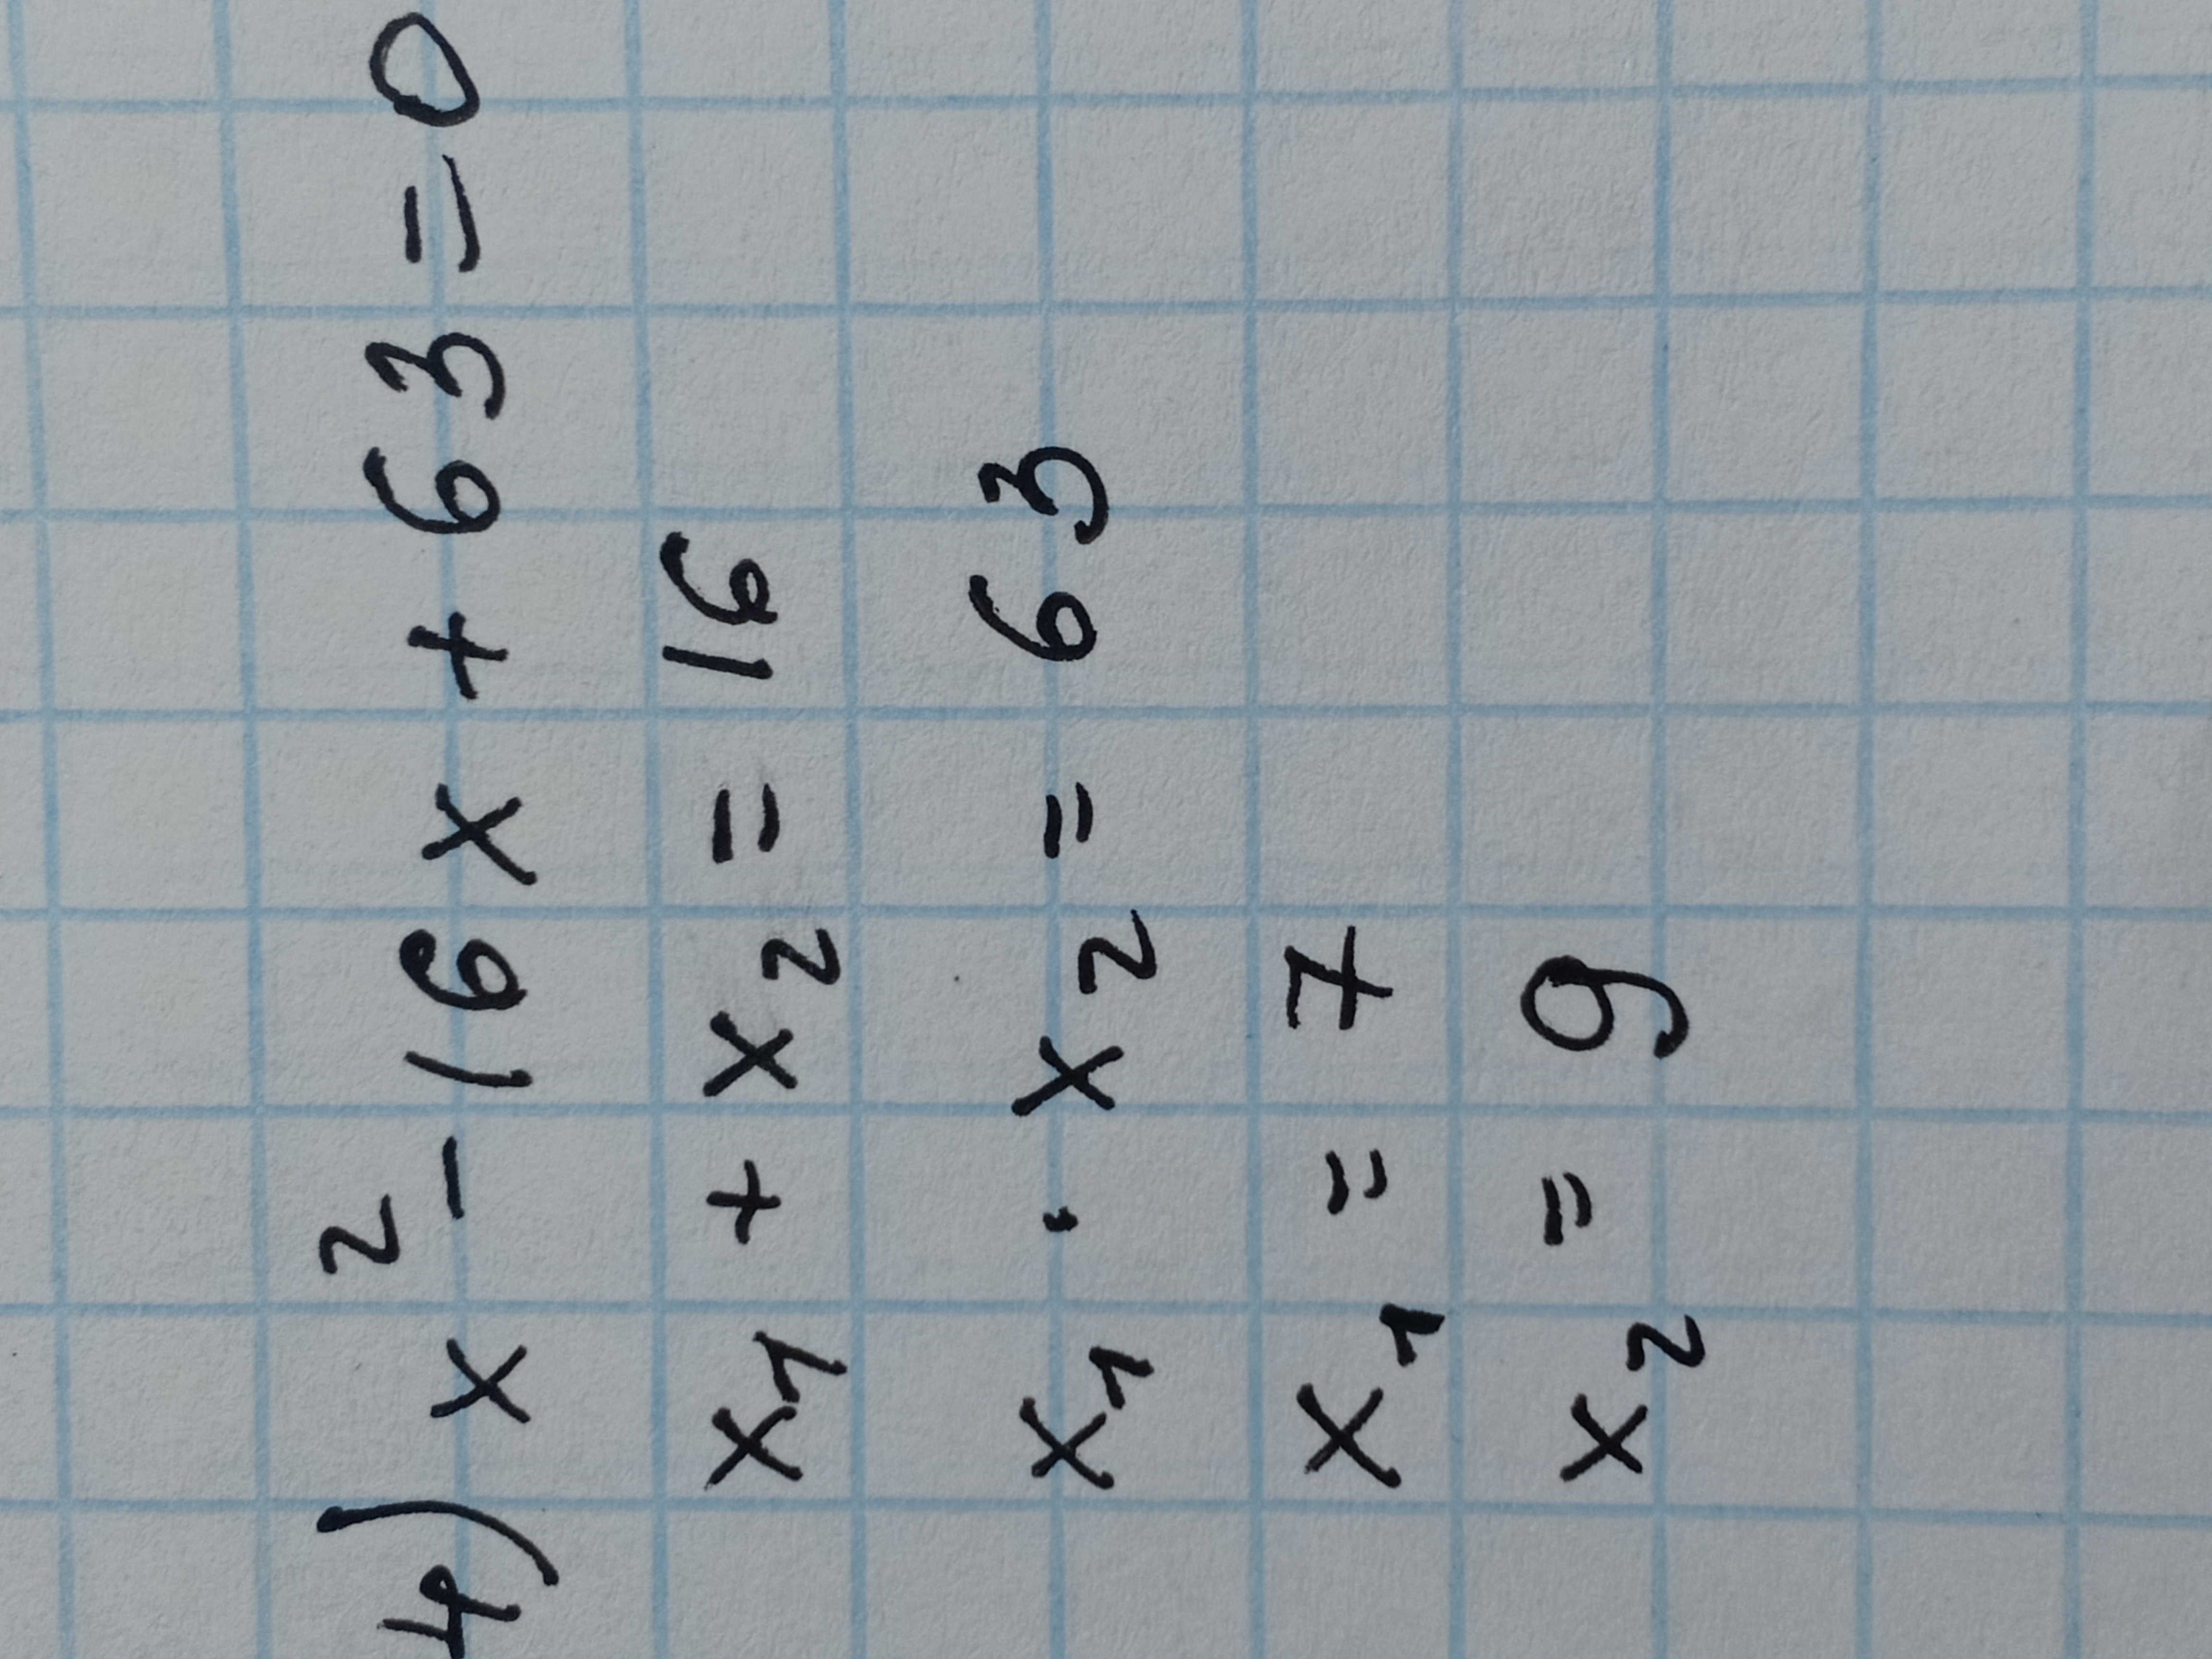 4) x² - 16x + 63 = 0
x₁ + x₂ = 16
x₁ · x₂ = 63
x₁ = 7
x₂ = 9